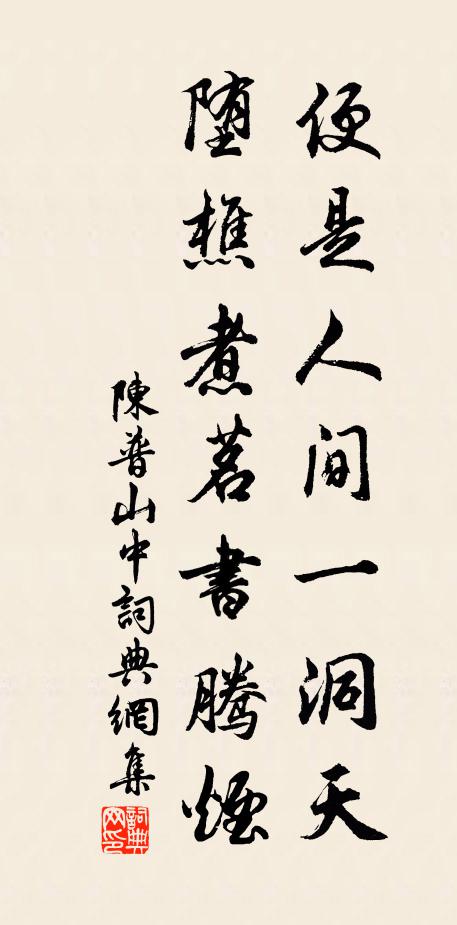 便是人间一洞天
堕樵煮茗書腾煙
陳普山中詞典網集
詞典
网印